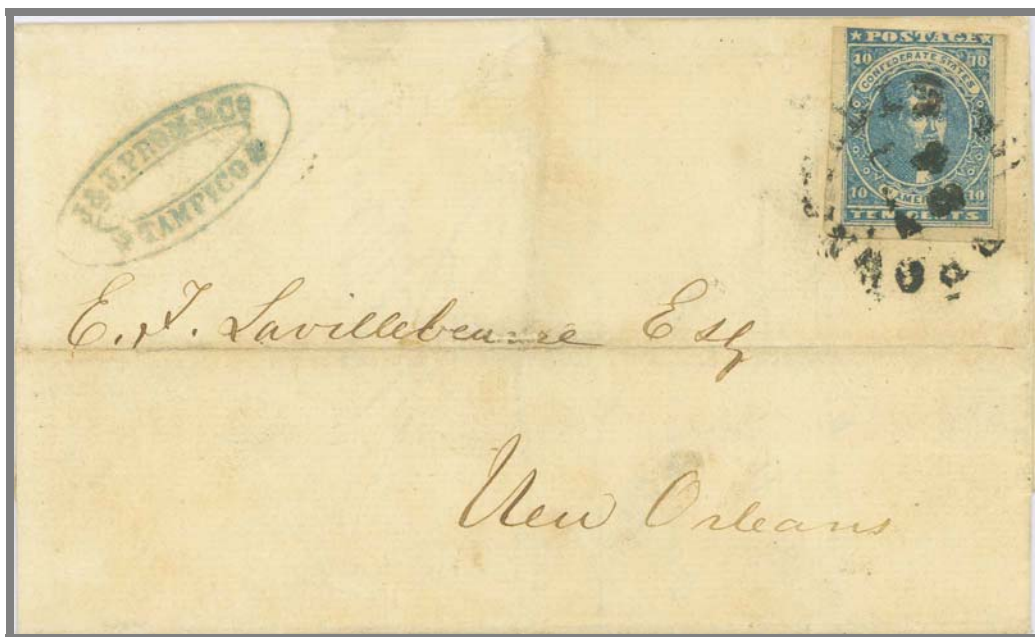 J & J. PROM. & Co
TAMPICO
★ POSTAGE ★
10 10
CONFEDERATE STATES
10 10
TEN CENTS
E. J. Lavillebeuvre Esq
New Orleans